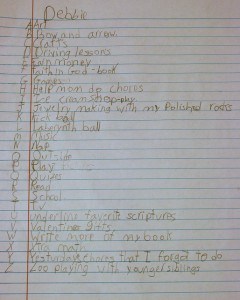 Debbie
A Art
B Bow and arrow
C Crafts
D Driving lessons
E Earn money
F Faith in God book
G Games
H Help mom do chores
I Ice cream
J Jewelry making with my Polished rocks
K Kick ball
L Labyrinth ball
M Music
N Nap
O Outside
P Play
Q
R Read
S School
T TV
U Underline favorite scriptures
V Valentine gifts
W Write more of my book
X Xtra math
Y Yesturdays chores that I forgot to do
Z Zoo playing with younger siblings